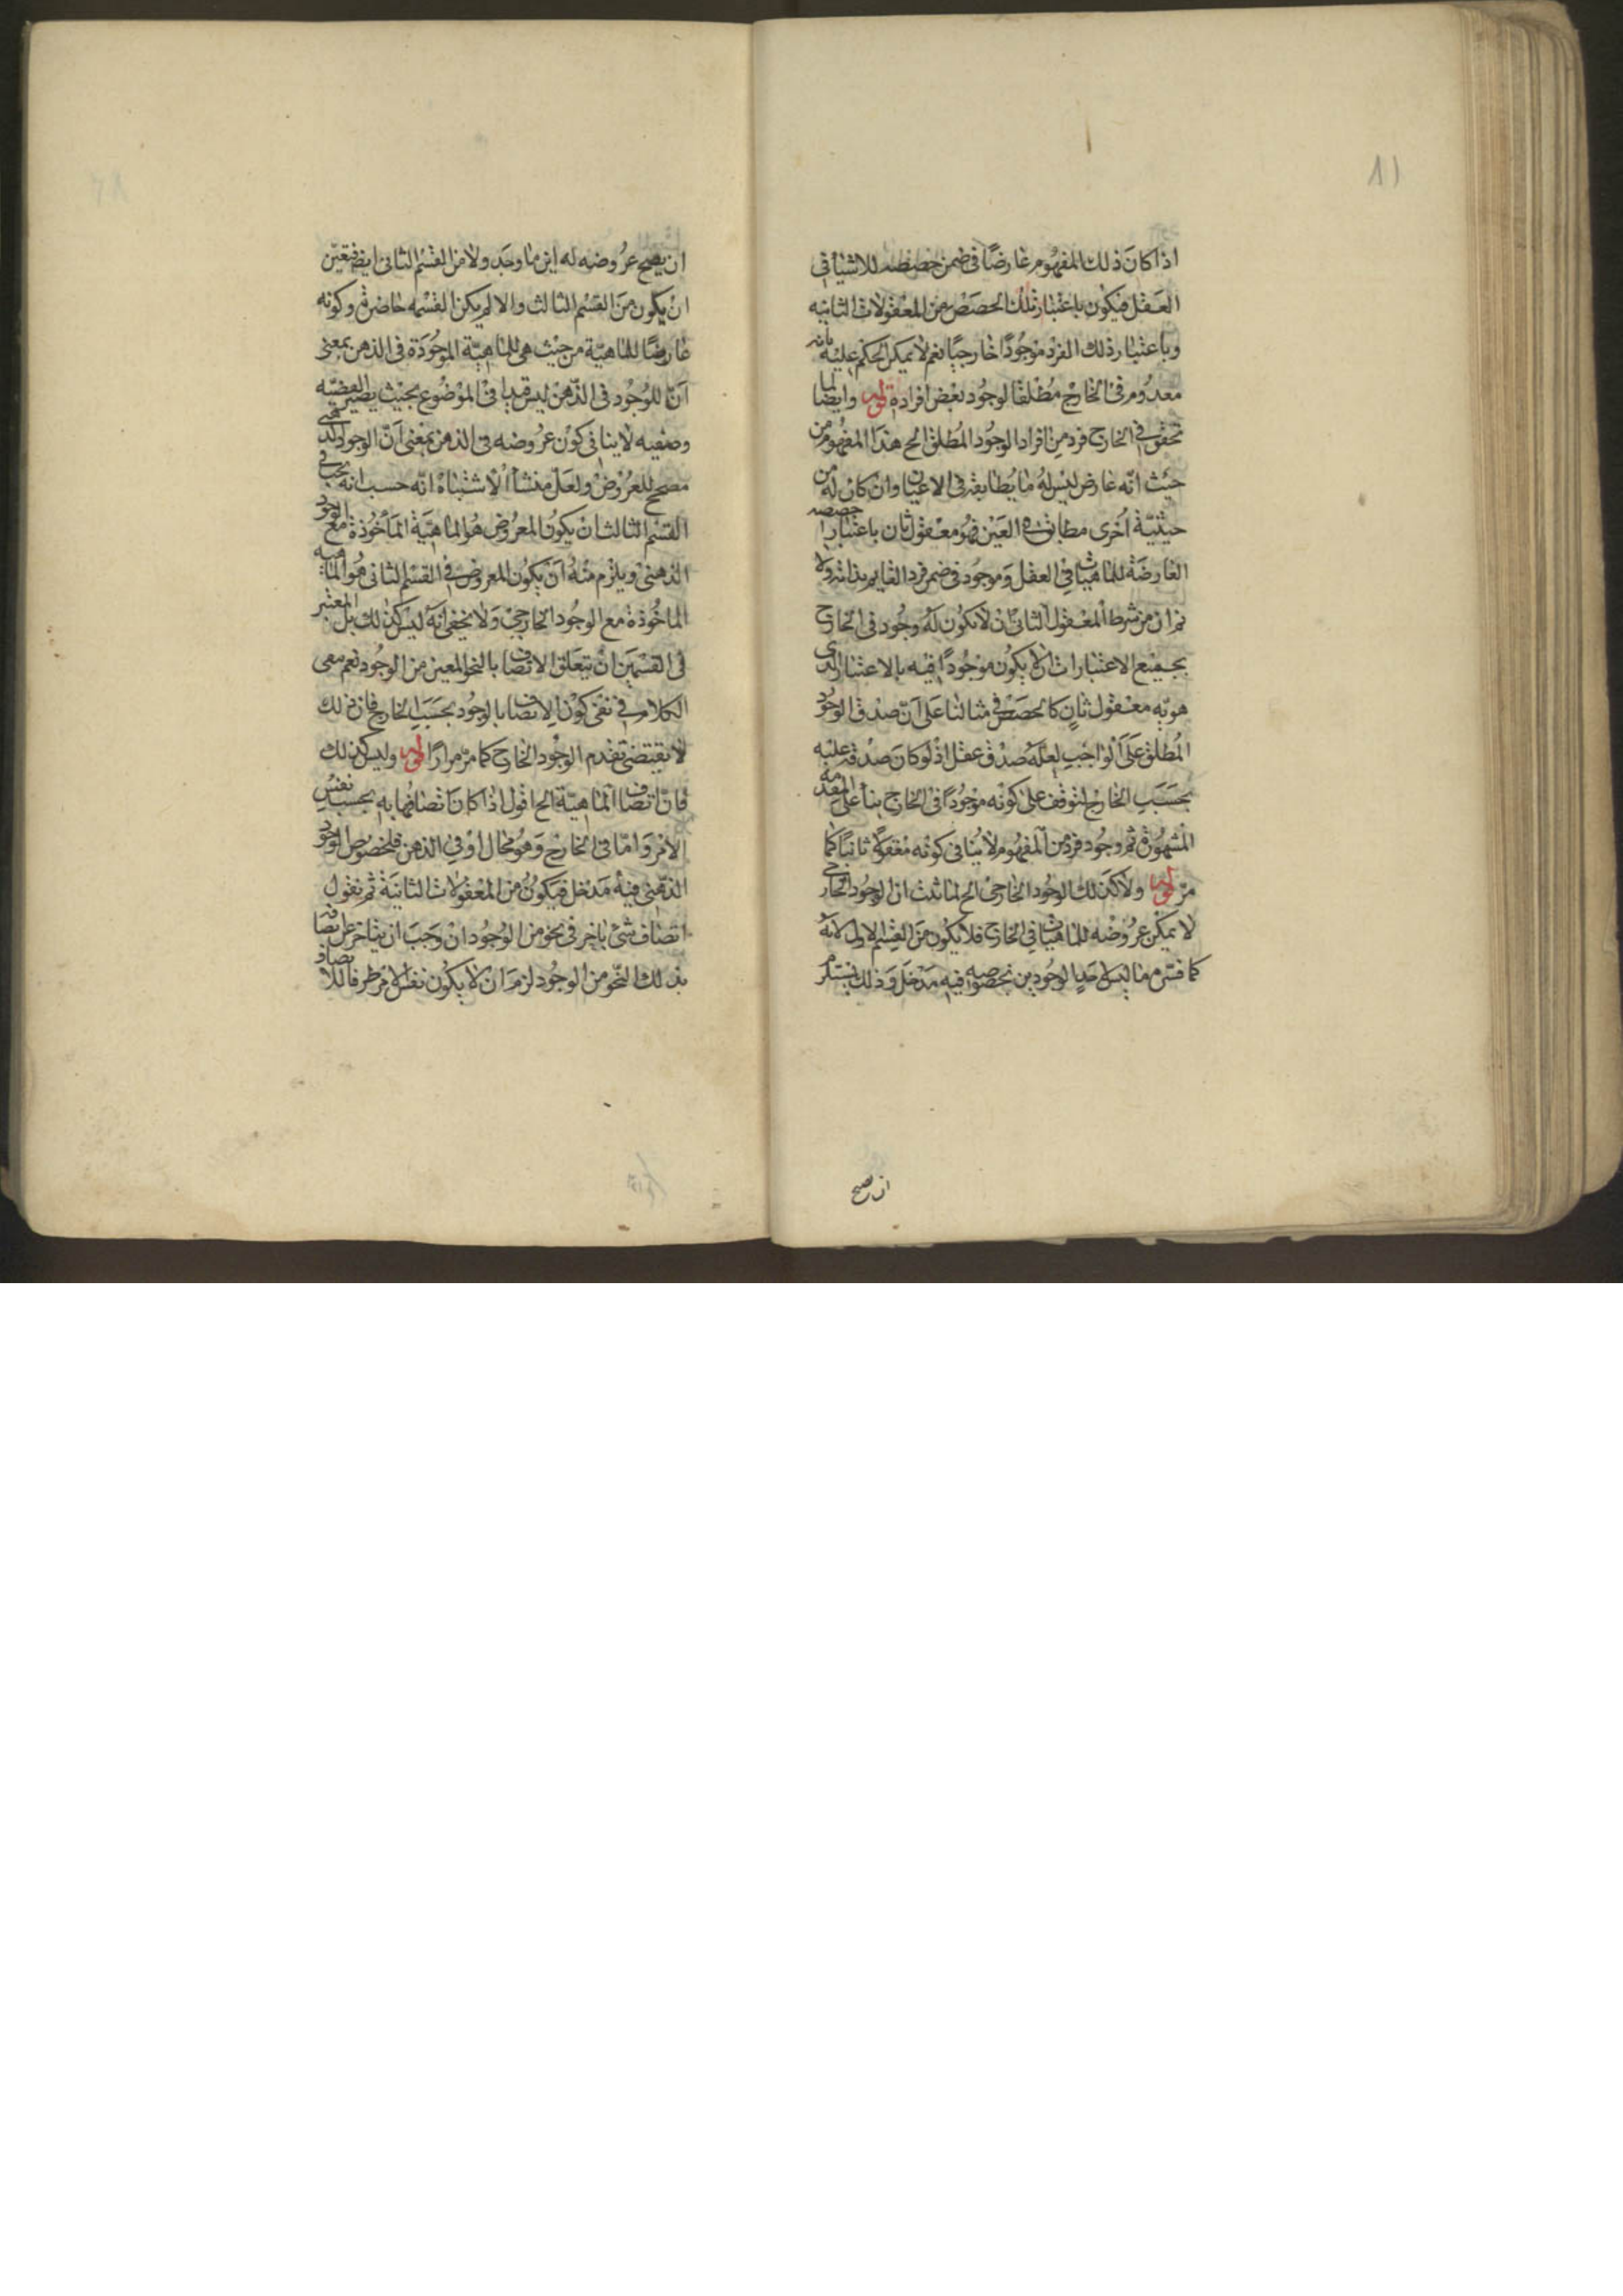 ١١
اذا كان ذلك المفهوم عارضًا فى ضمن حصصه للاشيا فى
العقل فيكون باعتبار تلك الحصص من المعقولات الثانيه
وباعتبار ذلك الفرد موجودًا خارجيا نعم لا يمكن الحكم عليه بانه
معدوم فى الخارج مطلقا لوجود بعض افراده قوله وايضا لما
تحقق فى الخارج فرد من افراد الوجود المطلق الخ هذا المفهوم من
حيث انه عارض ليس له ما يطابقه فى الاعيان وان كان له من
حيثية اخرى مطابق فى العين فهو معقول ثان باعتبار حصصه
العارضة للماهيات فى العقل وموجود فى ضمن فرد القايم بذاته ولا
ثم ان من شرط المعقول الثانى ان لا يكون له وجود فى الخارج
بجميع الاعتبارات بل ان لا يكون موجودًا فيه بالاعتبار الذى
هو به معقول ثانٍ كالحصص فى مثالنا على ان صدق الوجود
المطلق على الواجب لعله صدق عقلى اذ لو كان صدقه عليه
بحسب الخارج لتوقف على كونه موجودًا فى الخارج بناء على المقدمه
المشهورة ثم وجود فرد من المفهوم لا ينافى كونه معقولا ثانيا كما
مر قوله ولا كذلك الوجود الخارجى الخ لما ثبت ان الوجود الخارجى
لا يمكن عروضه للماهيات فى الخارج فلا يكون من القسم الاول لانه
كما فسر ما ليس لاحد الوجودين بخصوصه فيه مدخل وذلك يستلزم
ان يصح
ان يصح عروضه له اين ما وجد ولا من القسم الثانى ايضا فتعين
ان يكون من القسم الثالث والا لم يكن القسمه حاضرة وكونه
عارضًا للماهية من حيث هى لا للماهية الموجودة فى الذهن بمعنى
ان الوجود فى الذهن ليس قيدا فى الموضوع بحيث يصير القضيه
وصفيه لا ينافى كون عروضه فى الذهن بمعنى ان الوجود الذهنى
مصحح للعروض ولعل منشأ الاشتباه انه حسب انه يجب فى
القسم الثالث ان يكون المعروض هو الماهية المأخوذة مع الوجود
الذهنى ويلزم منه ان يكون المعروض فى القسم الثانى هو الماهيه
الماخوذة مع الوجود الخارجى ولا يخفى انه ليس كذلك بل المعتبر
فى القسمين ان يتعلق الاتصاف بالنحو المعين من الوجود نعم بقى
الكلام فى نفى كون الاتصاف بالوجود بحسب الخارج فان ذلك
لا يقتضى تقدم الوجود الخارج كما مر مرارًا قوله وليس كذلك
فان اتصاف الماهية الخ اقول اذا كان اتصافها به بحسب نفس
الامر واما فى الخارج وهو محال او فى الذهن فلخصوص الوجود
الذهنى فيه مدخل فيكون من المعقولات الثانية ثم نقول
اتصاف شئ باخر فى نحو من الوجود ان وجب ان يتاخر عن اتصافه
بذلك النحو من الوجود لزم ان لا يكون نفس الامر ظرفا للاتصاف